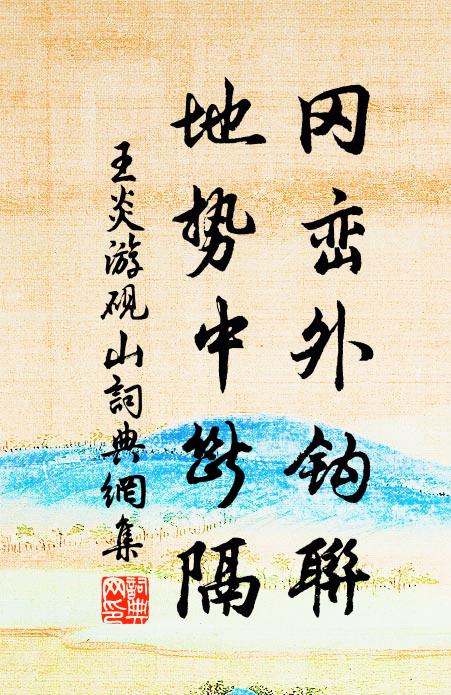 冈峦外钩聯
地势中断隔
王炎游砚山詞典網集
詞典